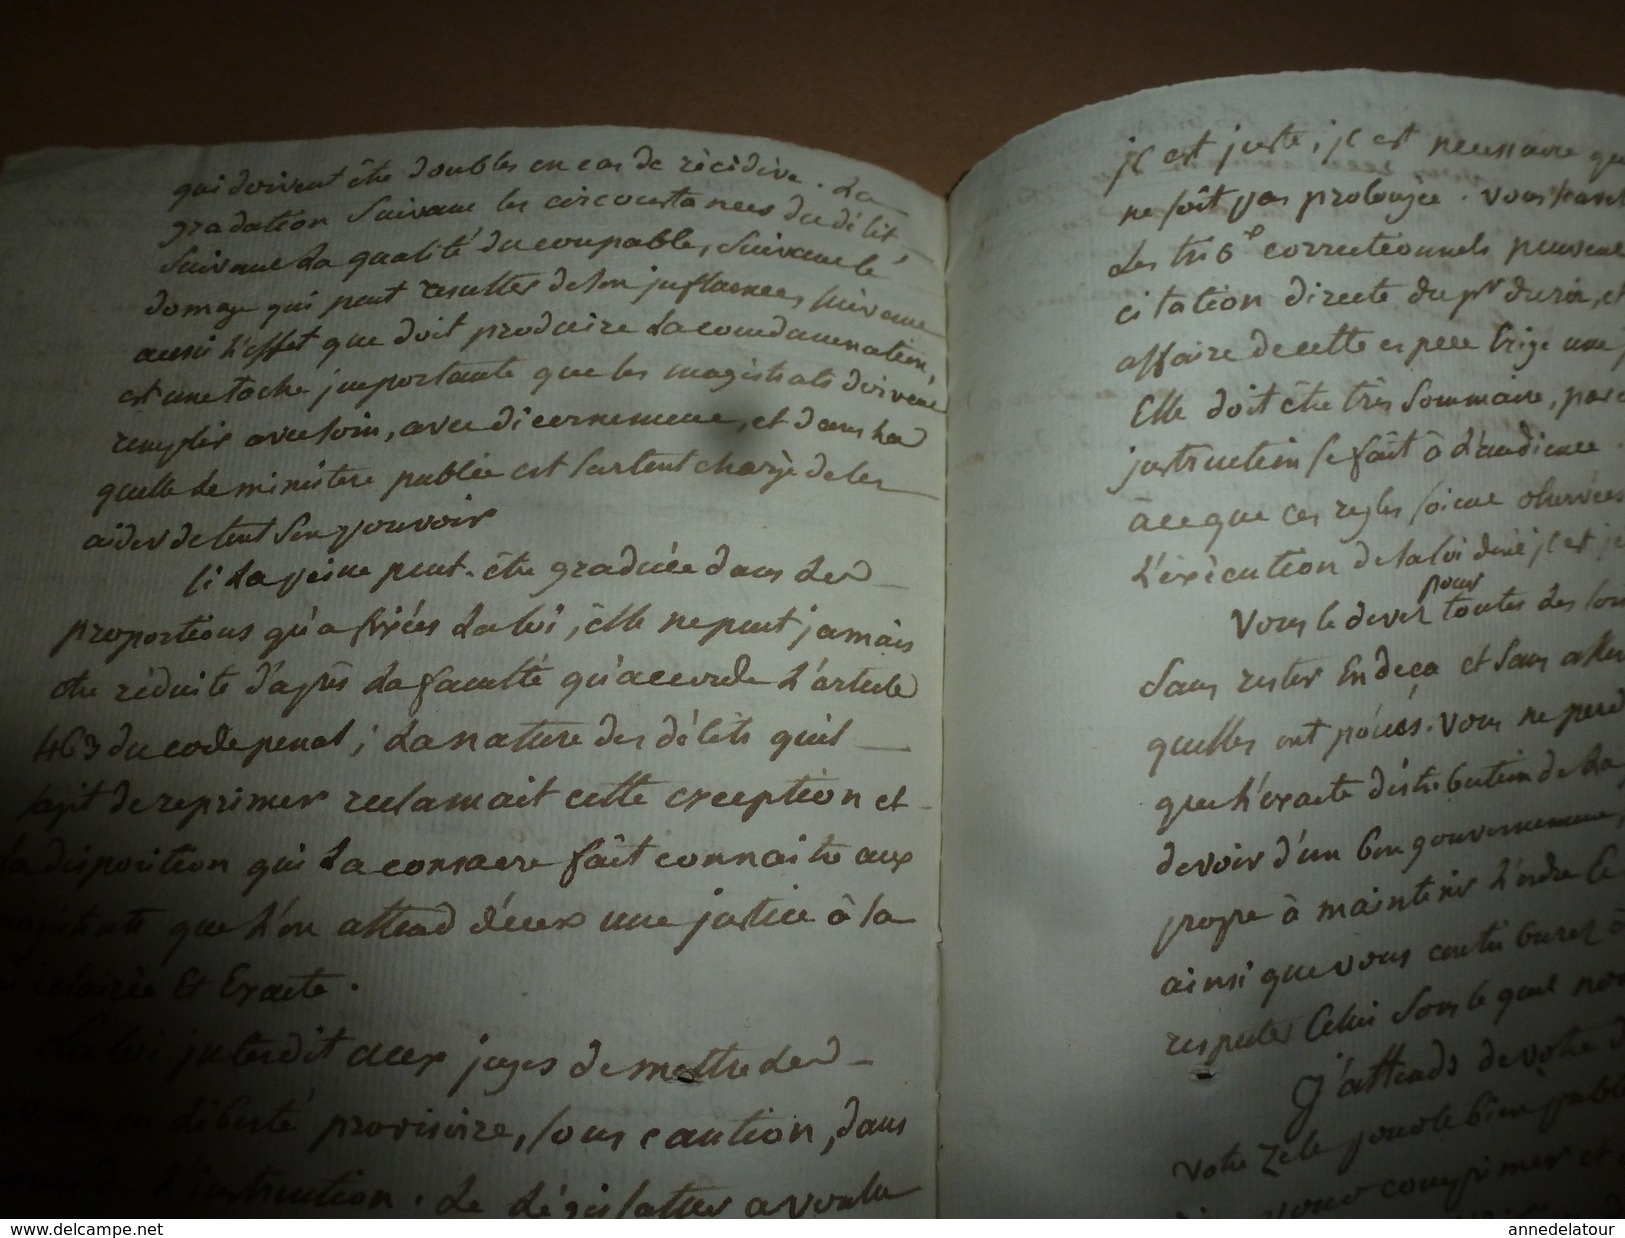 qui doivent être doubles en cas de récidive. La
gradation suivant les circonstances du délit,
suivant la qualité du coupable, suivant le
domage qui peut resulter de son jnfluence, suivant
aussi l'effet que doit produire la condamnation,
est une tache jmportante que les magistrats doivent
remplir avec soin, avec dicernement, et dans la
quelle le ministère public est surtout chargé de les
aider de tout son pouvoir
si la peine peut-être graduée dans les
proportions qu'a fixées la loi, elle ne peut jamais
être réduite d'après la faculté qu'accorde l'article
463 du code penal; la nature des délits quil
sagit de reprimer reclamait cette exception et
la disposition qui la consacre fait connaitre aux
magistrats que l'on attend d'eux une justice à la
éclairée Et Exacte.
La loi jnterdit aux juges de mettre les
en liberté provisoire, sous caution, dans
l'jnstruction. Le Législateur a voulu
jl est juste, jl est necessaire que
ne soit pas prolongée. vous savez
Les trib^x correctionnels peuvent
citation directe du p^r du roi, et
affaire de cette espece Exige une
Elle doit être très sommaire, parc
jnstruction se fait à l'audience.
à ce que ces regles soient observées
L'exécution de la loi
pour
Vous le devez toutes les lois
Sans rester En deça et sans aller
quelles ont posées. Vous ne perd
que l'exacte distribution de la
devoir d'un bon gouvernement,
propre à maintenir l'ordre Et
ainsi que vous contriburez à
respecter Celui sous le quel nou
J'attends de votre
votre Zele pour le bien public
vous comprimer et
www.delcampe.net
annedelatour